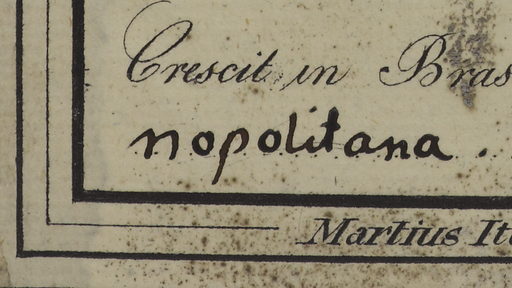 Crescit in Bras
nopolitana.
Martius It